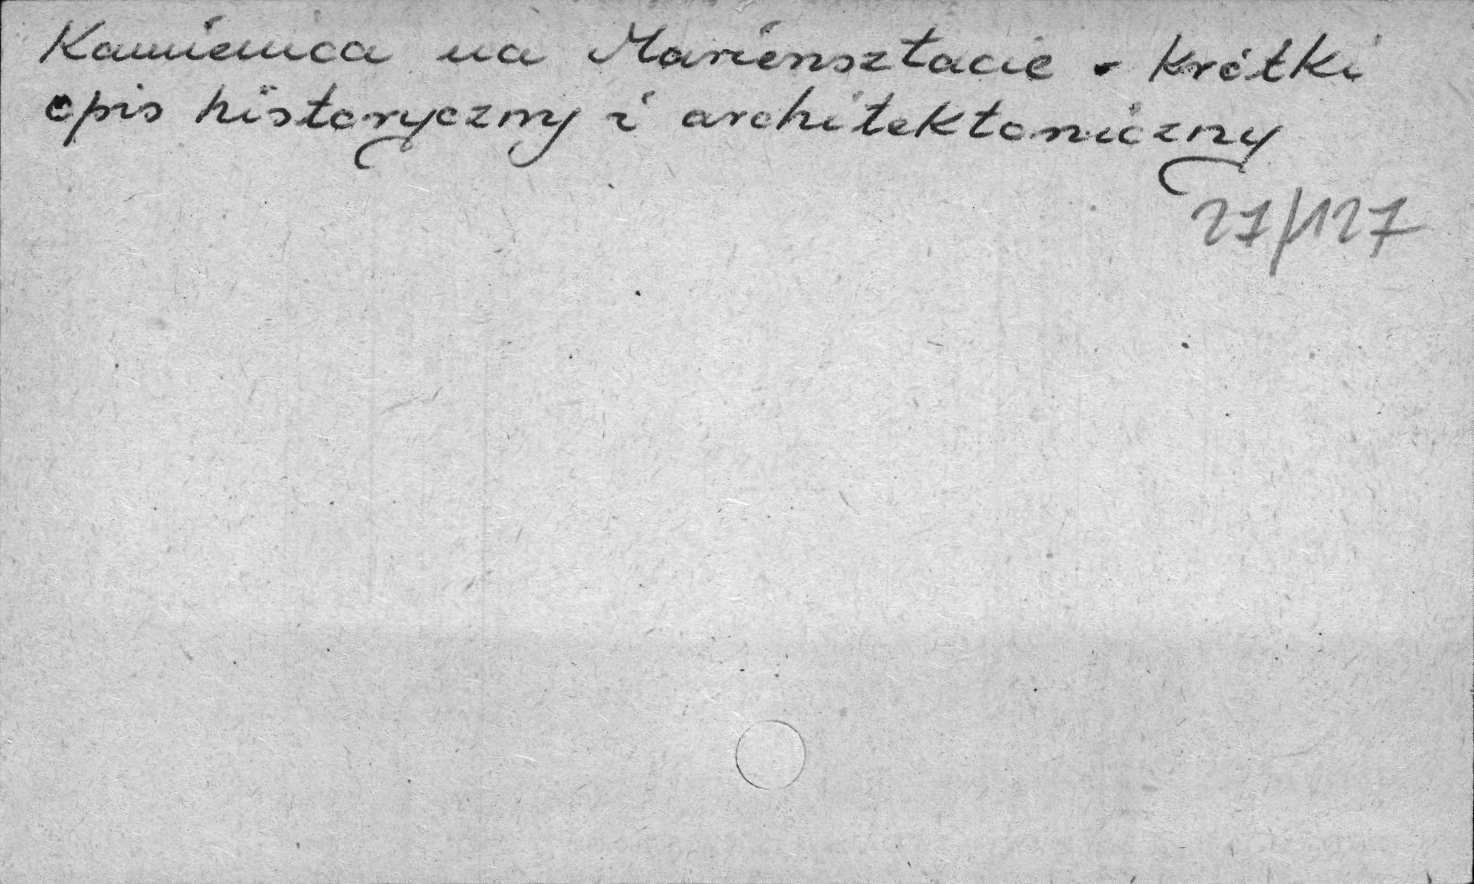 Kamienica na Mariensztacie - krótki
opis historyczny i architektoniczny
27/127